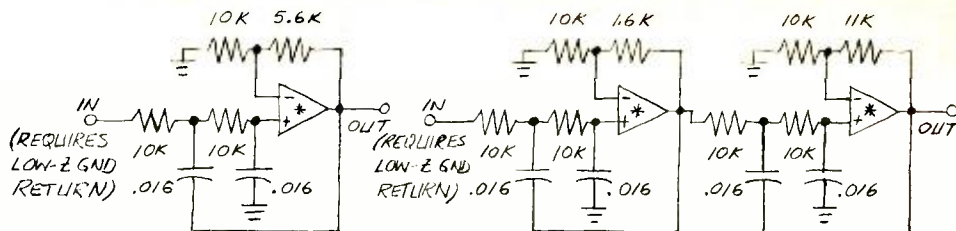 10K 5.6K
IN
(REQUIRES
LOW-Z GND
RETURN)
10K
10K
.016
.016
-
*
+
OUT
10K 1.6K
IN
(REQUIRES
LOW-Z GND
RETURN)
10K
10K
.016
.016
-
*
+
10K 11K
10K
10K
.016
.016
-
*
+
OUT